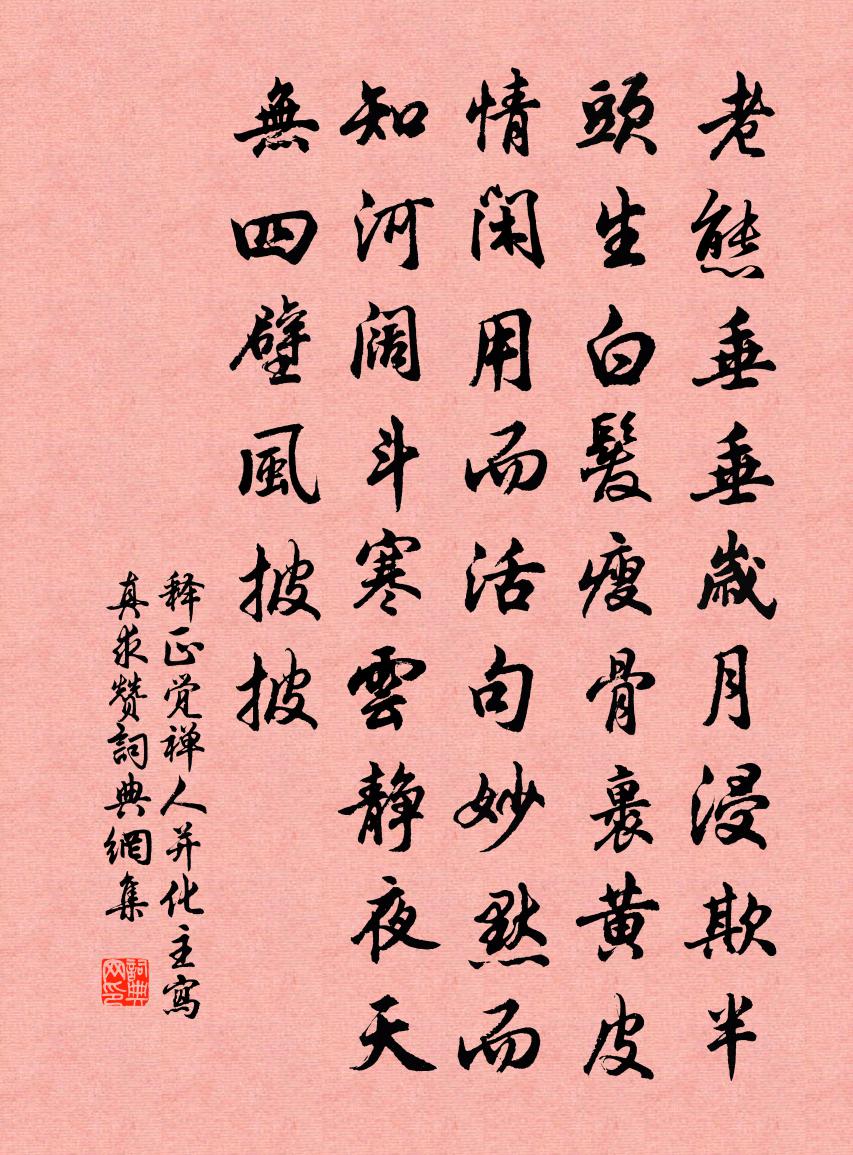 老態垂垂歲月浸欺半
頭生白髮瘦骨裹黃皮
情閑用而活句妙默而
知河阔斗寒雲静夜天
無四壁風披披
释正觉禅人并化主寫
真求赞詞典網集
詞典网印